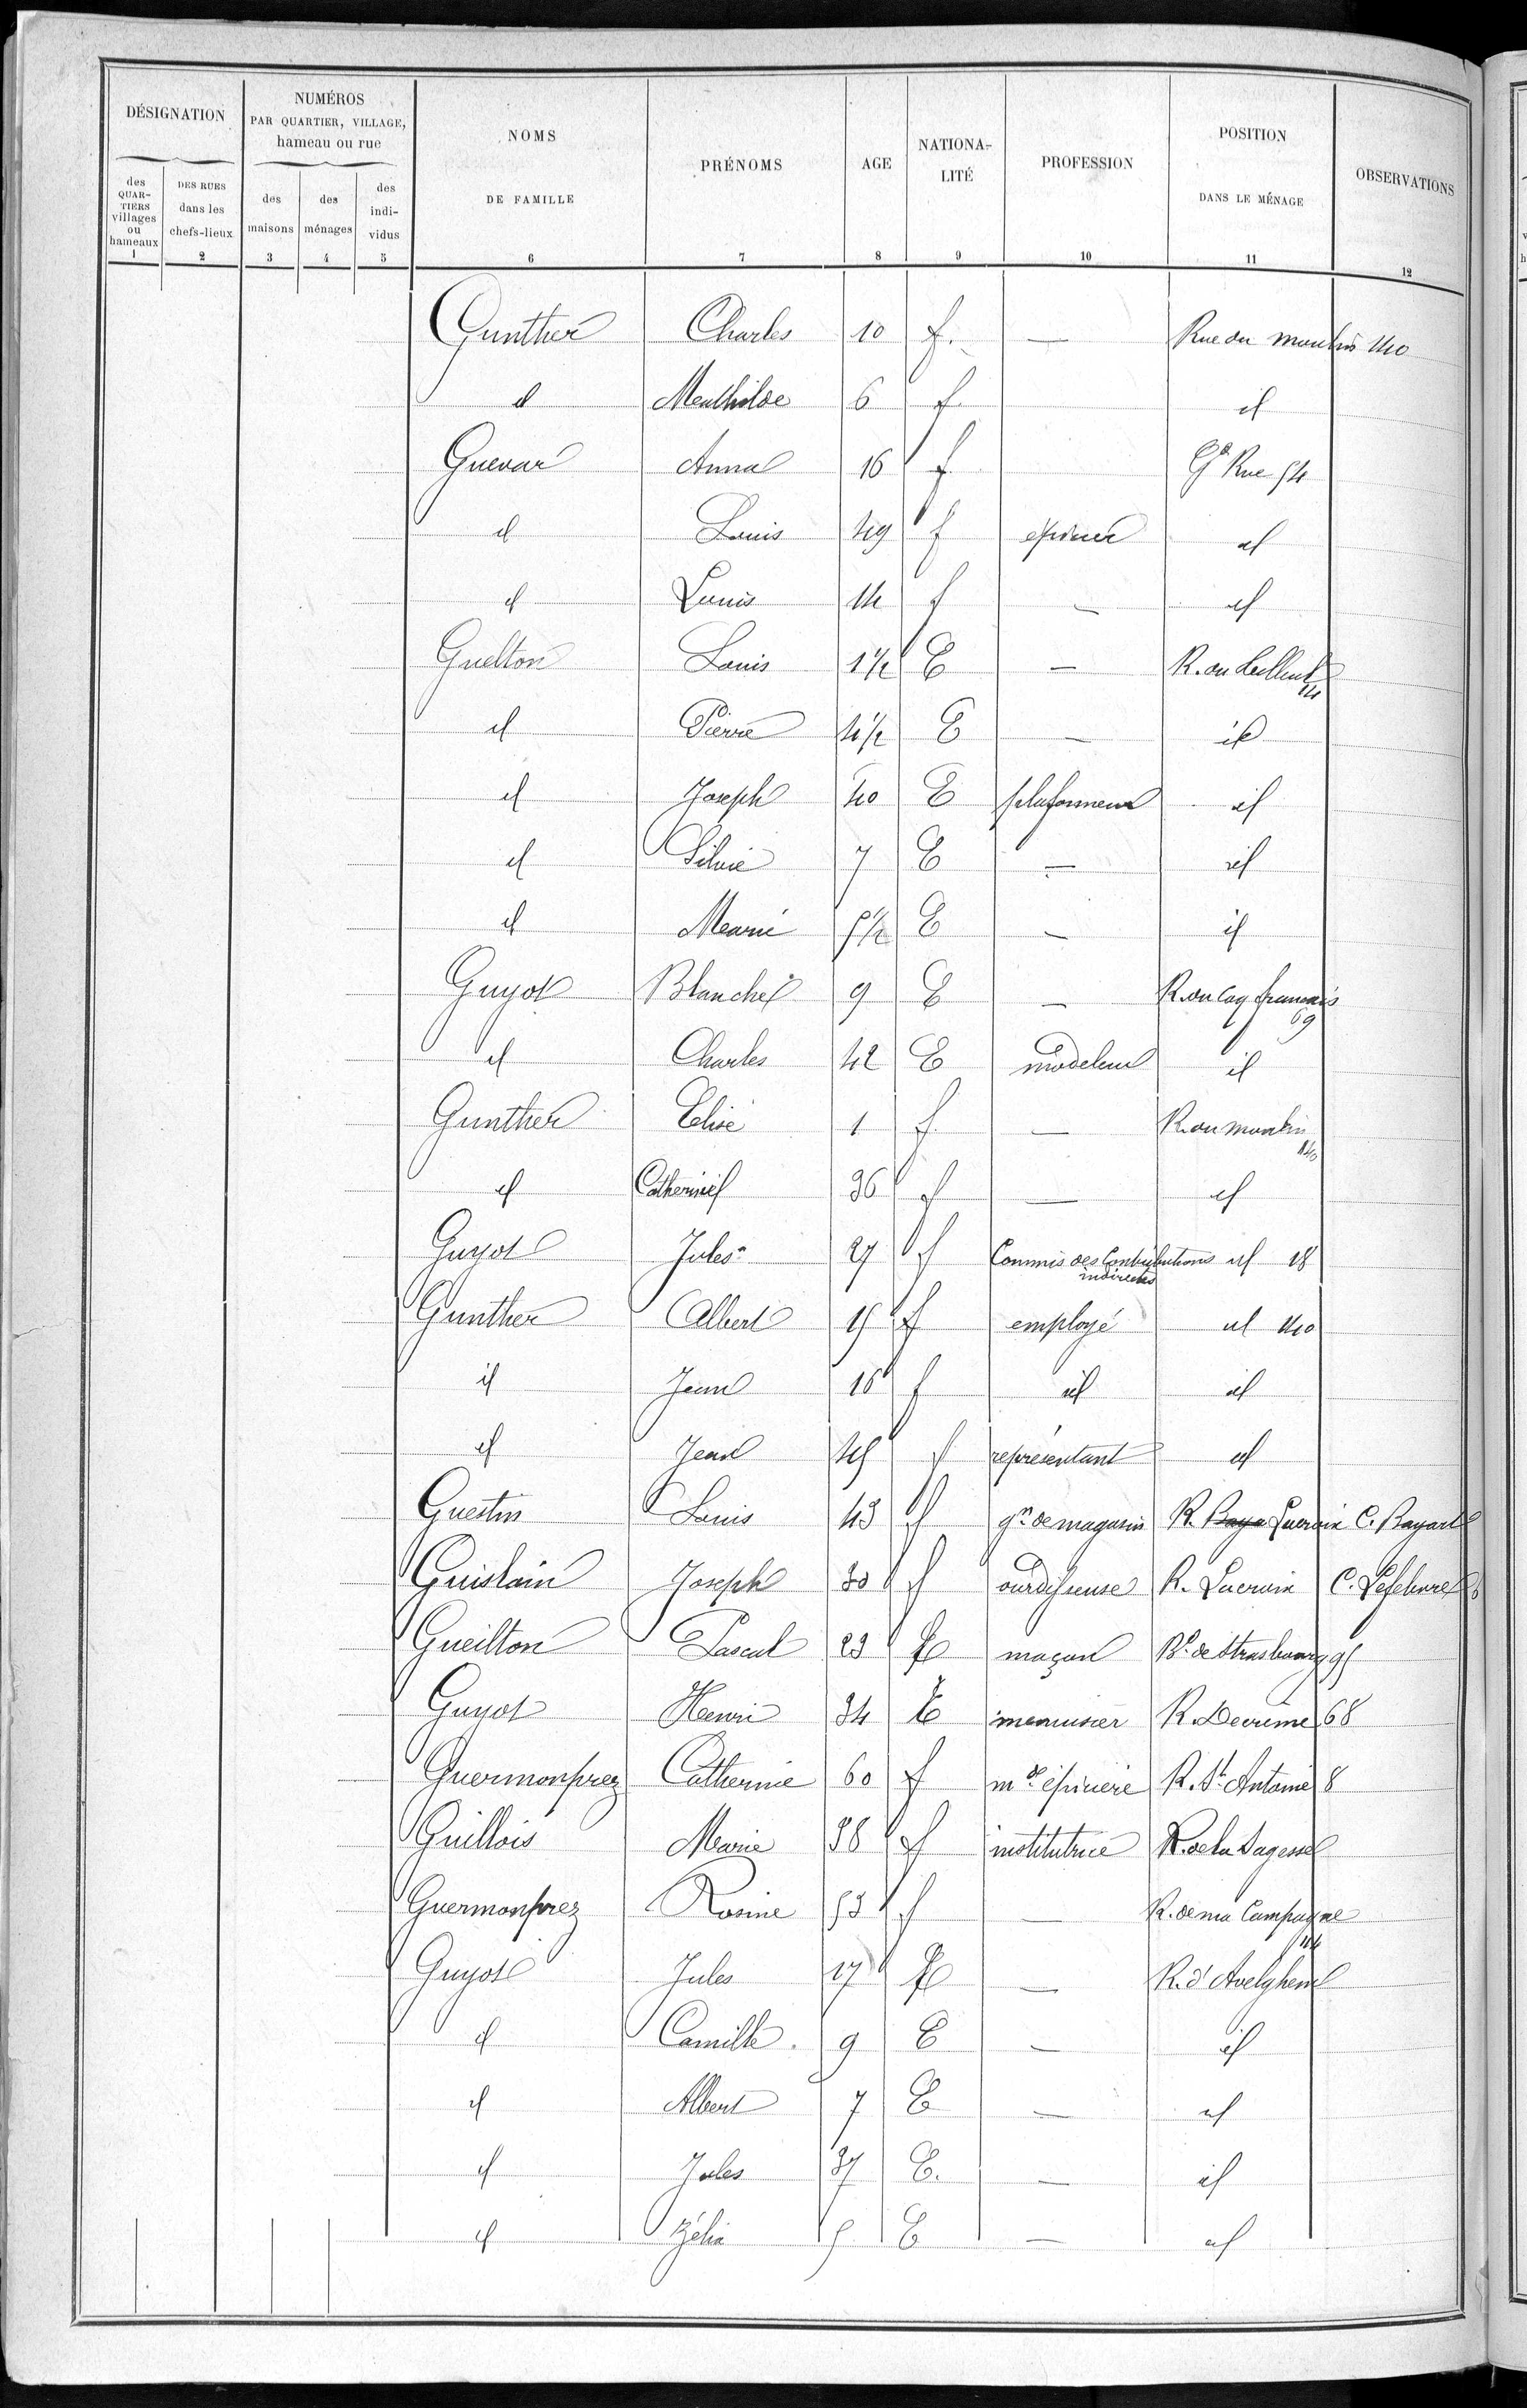 DÉSIGNATION
NUMÉROS
PAR QUARTIER, VILLAGE,
hameau ou rue
NOMS
DE FAMILLE
PRÉNOMS
AGE
NATIONA-
LITÉ
PROFESSION
POSITION
DANS LE MÉNAGE
OBSERVATIONS
des
QUAR-
TIERS
villages
ou
hameaux
DES RUES
dans les
chefs-lieux
des
maisons
des
ménages
des
indi-
vidus
1 2 3 4 5 6 7 8 9 10 11 12
Gunther Charles 10 f. — Rue du moulin 140
id Mathilde 6 f id
Guevar Anna 16 f Gde Rue 54
id Louis 49 f épicier id
id Louis 14 f — id
Guelton Louis 1 1/2 E — R. du 14
id Pierre 4 1/2 E — id
id Joseph 40 E plafonneur id
id Silvie 7 E — id
id Marie 5 1/2 E — id
Guyot Blanche 9 E — R. du Coq français 69
id Charles 42 E modeleur id
Gunther Elise 1 f — R. du moulin 140
id Catherine 36 f — id
Guyot Jules 27 f Commis des Contributions indirectes id 18
Gunther Albert 15 f employé id 140
id Jean 16 f id id
id Jean 45 f représentant id
Guestin Louis 43 f gn de magasin R. Baya Lacroix C. Bayart
Guislain Joseph 30 f ourdisseuse R. Lacroix C. Lefebvre 6
Gueilton Pascal 23 E maçon Bd de Strasbourg 95
Guyot Henri 34 E menuisier R. Decrême 68
Guermonprez Catherine 60 f mde épicière R. St Antoine 8
Guillois Marie 38 f institutrice R. de la Sagesse
Guermonprez Rosine 53 f — R. de ma Campagne 44
Guyot Jules 17 E — R. d'Avelghem
id Camille 9 E — id
id Albert 7 E — id
id Jules 37 E. — id
id Zélia 5 E — id